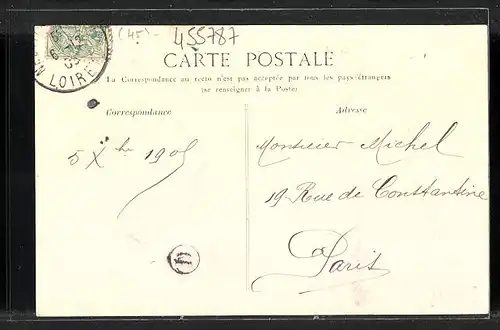 (45)
455787
LOIRE
CARTE POSTALE
La Correspondance au recto n'est pas acceptée par tous les pays étrangers
(se renseigner à la Poste)
Correspondance
Adresse
5 Xbre 1905
Monsieur Michel
19 Rue de Constantine
Paris